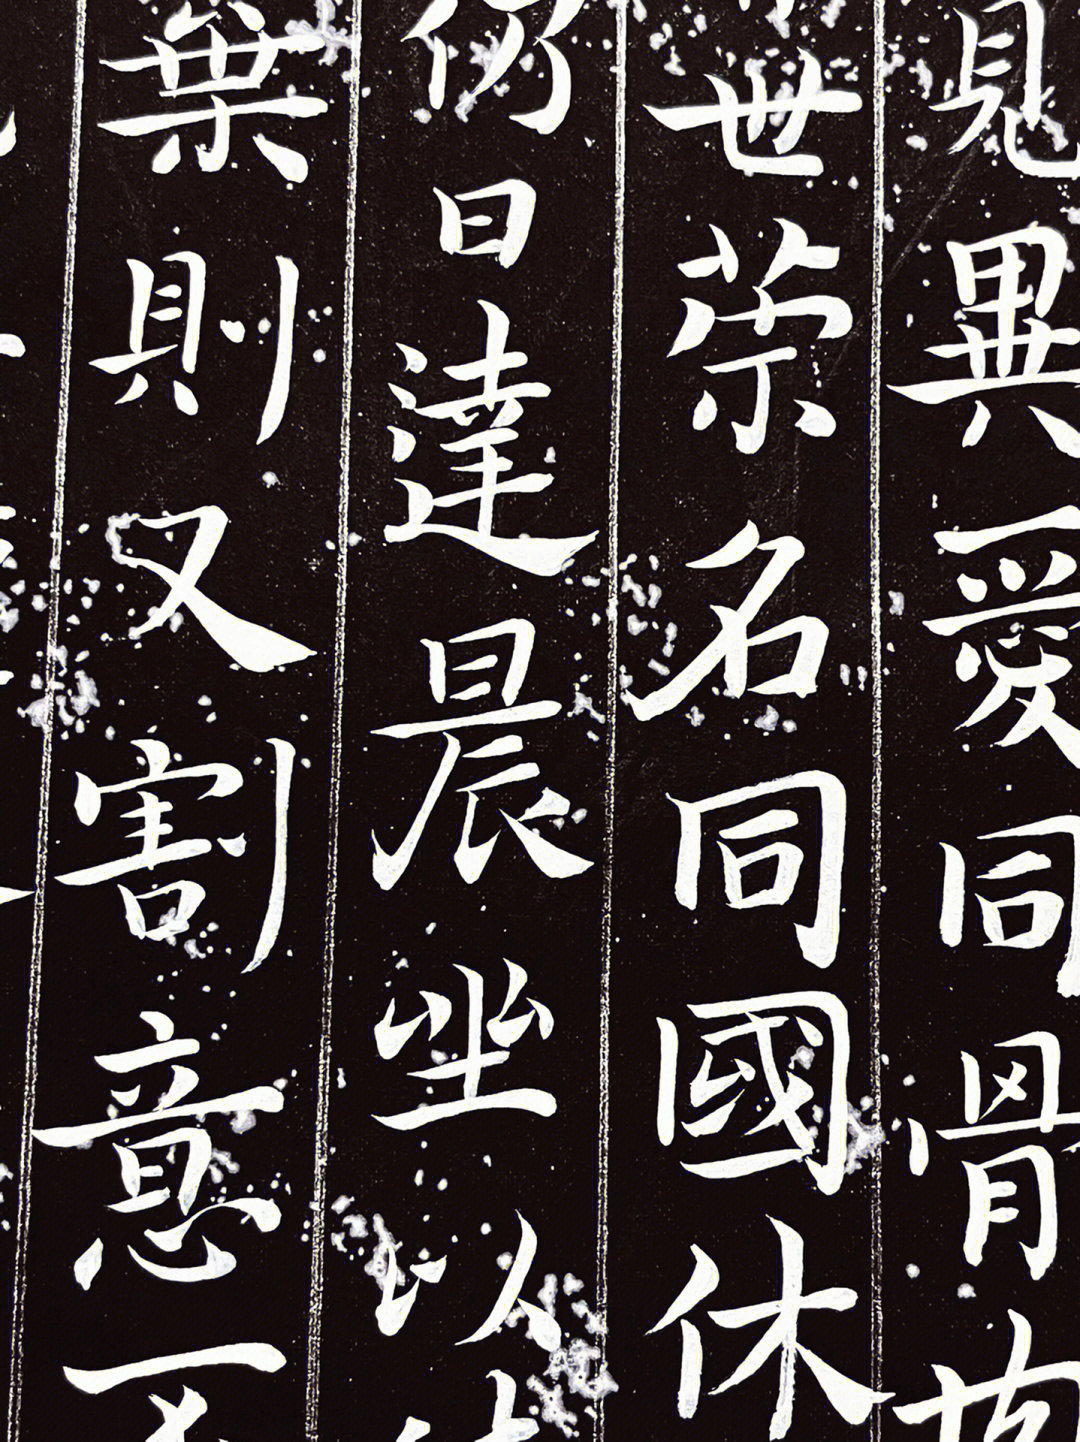 見異愛同骨
世榮名同國休
仍日達晨坐以
棄則又割意不